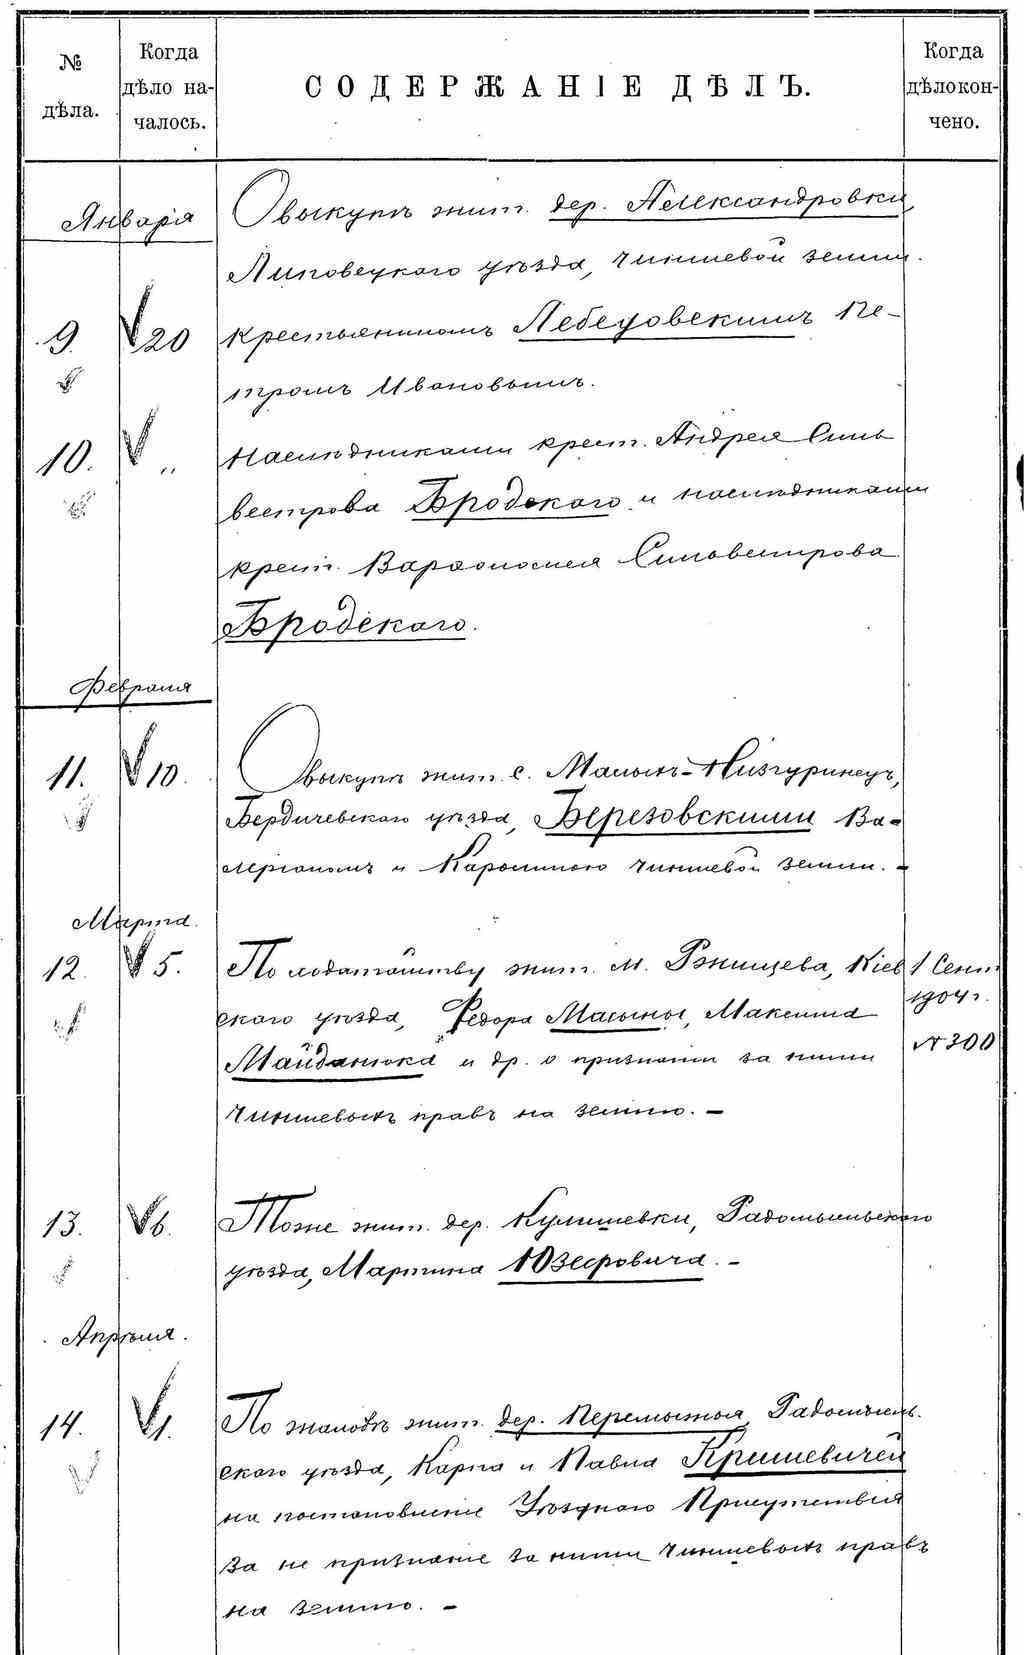 № дѣла.
Когда дѣло на-
чалось.
СОДЕРЖАНІЕ ДѢЛЪ.
Когда дѣло кон-
чено.
Января
О выкупѣ жит. дер. Александровки,
Липовецкаго уѣзда, чиншевой земли.
9. 20 крестьяниномъ Лебедовскимъ Пе-
тромъ Ивановымъ.
10. " Наслѣдниками крест. Андрея Силь
вестрова Бродскаго и наслѣдниками
крест. Варѳоломея Сильвестрова
Бродскаго.
Февраля
11. 10. О выкупѣ жит. с. Малыхъ-Низгуринецъ,
Бердичевскаго уѣзда, Березовскими Ва-
леріаномъ и Каролиною чиншевой земли. –
Марта.
12. 5. По ходатайству жит. м. Ржищева, Кіев 1 Сент.
скаго уѣзда, Федора Масыны, Максима 1904 г.
Майданюка и др. о признаніи за ними №300
чиншевыхъ правъ на землю. –
13. 6. Тоже жит. дер. Кулишевки, Радомысльскаго
уѣзда, Мартина Юзефовича. –
Апрѣля.
14. 1. По жалобѣ жит. дер. Перемытыя Радомысль-
скаго уѣзда, Карпа и Павла Кришевичей
на постановленіе Уѣзднаго Присутствія
за не признаніе за ними чиншевыхъ правъ
на землю. –